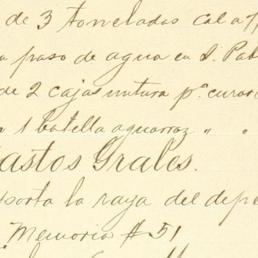 de 3 toneladas cal a
paso de agua en S. Pab
de 2 cajas untura p.ª curar
1 botella aguarraz " "
Gastos Grales.
porta la raya del depe
Memoria # 51